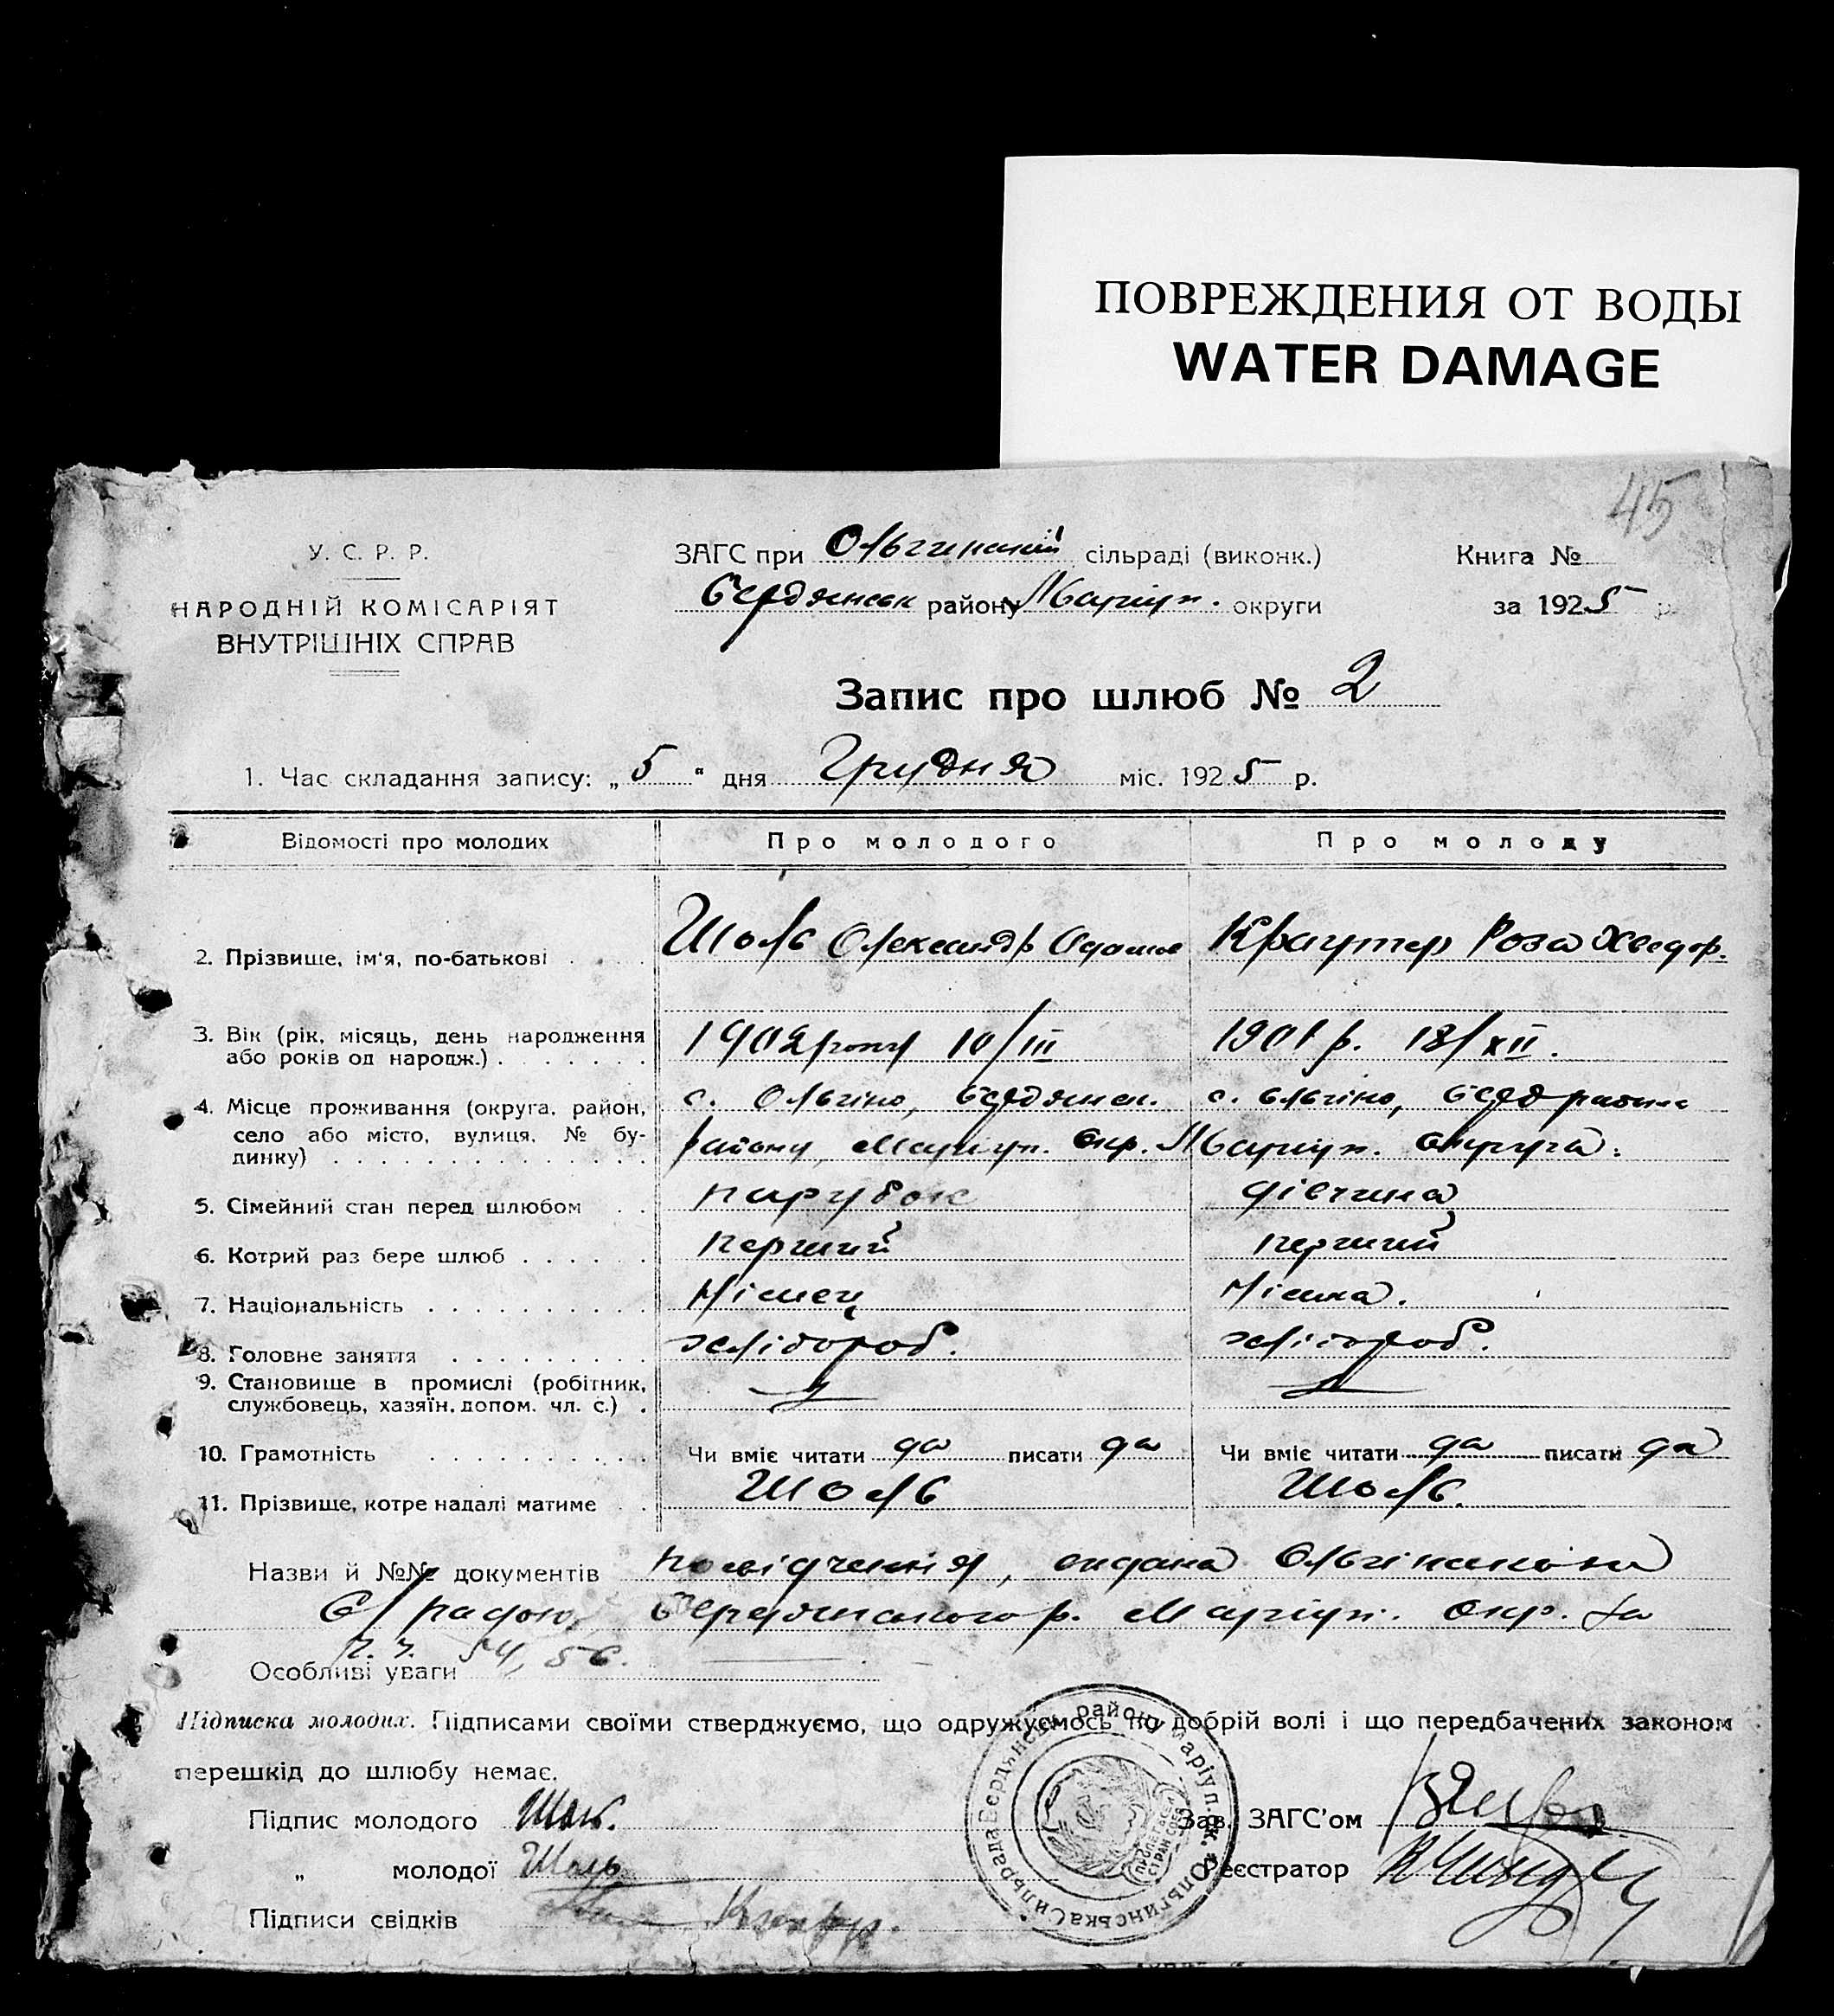 ПОВРЕЖДЕНИЯ ОТ ВОДЫ
WATER DAMAGE
45
У. С. Р. Р.
НАРОДНІЙ КОМІСАРІЯТ
ВНУТРІШНІХ СПРАВ
ЗАГС при Ольгинській сільраді (виконк.)
Бердянськ району Маріуп. округи
Книга №
за 1925 р.
Запис про шлюб № 2
1. Час складання запису: „5“ дня Грудня міс. 1925 р.
Відомості про молодих Про молодого Про молоду
2. Прізвище, ім'я, по-батькові Шоль Олександр Адамов Краутер Роза Хведор.
3. Вік (рік, місяць, день народження 1902 року 10/III 1901 р. 18/XII.
або років од народж.)
4. Місце проживання (округа, район, с. Ольгіно, Бердянськ. с. Ольгіно, Берд района
село або місто, вулиця, № бу- району, Маріуп. Окр. Маріуп. Округа.
динку)
5. Сімейний стан перед шлюбом парубок дівчина
6. Котрий раз бере шлюб перший перший
7. Національність Німец Німка.
8. Головне заняття хлібороб. хлібороб.
9. Становище в промислі (робітник,
службовець, хазяїн, допом. чл. с.)
10. Грамотність Чи вміє читати да писати да Чи вміє читати да писати да
11. Прізвище, котре надалі матиме Шоль Шоль.
Назви й №№ документів посвідчення, видана Ольгінською
С/радою, Бердянського р. Маріуп. Окр. за
ч. ч. 54, 56.
Особливі уваги
Підписка молодих. Підписами своїми стверджуємо, що одружуємось по добрій волі і що передбачених законом
перешкід до шлюбу немає.
Підпис молодого Шоль. Зав. ЗАГС'ом
„ молодої Шоль Реєстратор
Підписи свідків
Ольгинська Сильрада Бердянськ. району Маріуп. ок.